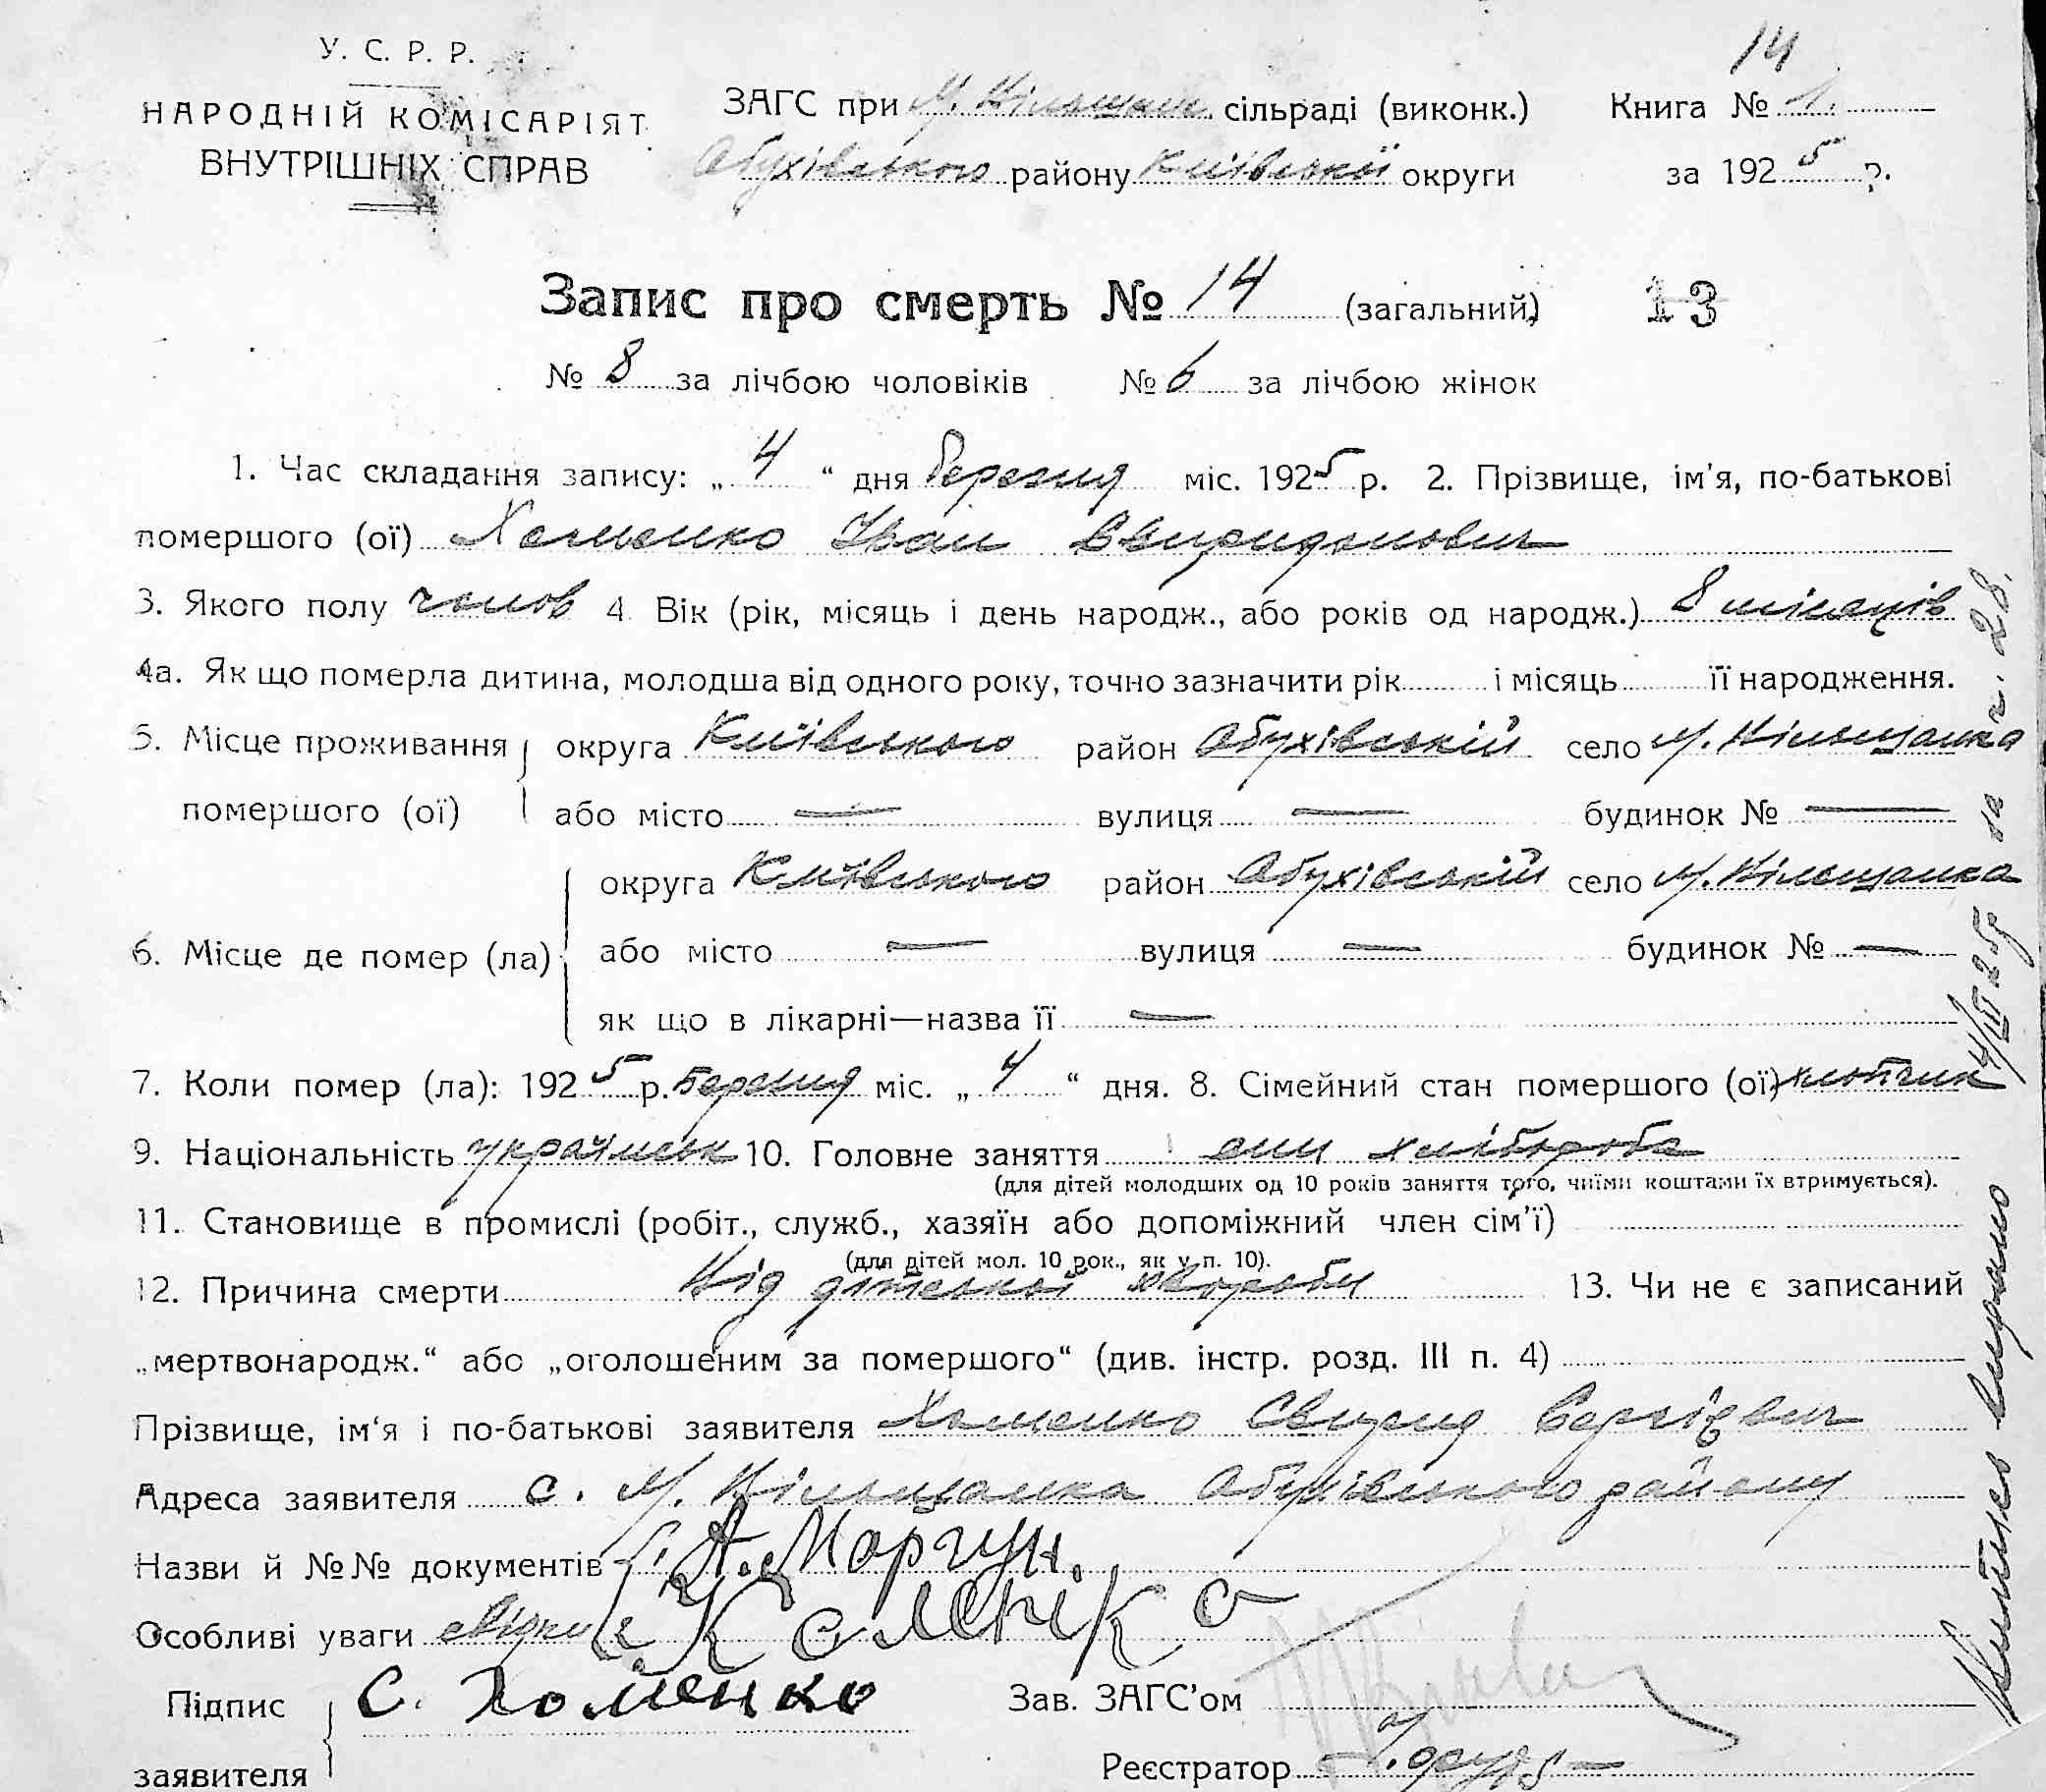 14
У. С. Р. Р.
НАРОДНІЙ КОМІСАРІЯТ
ВНУТРІШНІХ СПРАВ
ЗАГС при М. Вільшан. сільраді (виконк.)
Обухівського району Київської округи
Книга № 1.
за 1925 р.
Запис про смерть № 14 (загальний)
13
№ 8 за лічбою чоловіків № 6 за лічбою жінок
1. Час складання запису: „ 4 “ дня березня міс. 1925 р. 2. Прізвище, ім'я, по-батькові
помершого (ої) Хоменко Іван Свиридонович
3. Якого полу чолов 4. Вік (рік, місяць і день народж., або років од народж.) 8 місяців
4а. Як що померла дитина, молодша від одного року, точно зазначити рік і місяць її народження.
5. Місце проживання округа Київського район Обухівській село М. Вільшанка
помершого (ої) або місто — вулиця — будинок № —
округа Київського район Обухівській село М. Вільшанка
6. Місце де помер (ла) або місто — вулиця — будинок № —
як що в лікарні—назва її —
7. Коли помер (ла): 1925 р. березня міс. „ 4 “ дня. 8. Сімейний стан помершого (ої) хлопчик
9. Національність українськ 10. Головне заняття син хлібороба
(для дітей молодших од 10 років заняття того, чиїми коштами їх втримується).
11. Становище в промислі (робіт., служб., хазяїн або допоміжний член сім'ї)
(для дітей мол. 10 рок., як у п. 10).
12. Причина смерти Від дітської хвороби 13. Чи не є записаний
„мертвонародж.“ або „оголошеним за помершого“ (див. інстр. розд. III п. 4)
Прізвище, ім'я і по-батькові заявителя Хоменко Свирид Сергієвич
Адреса заявителя с. М. Вільшанка Обухівського району
Назви й №№ документів А. Моргун.
Особливі уваги свідки
Підпис заявителя С. Хоменко
Зав. ЗАГС'ом
Реєстратор
Витяг видано 4/III 25 р за ч. 28.